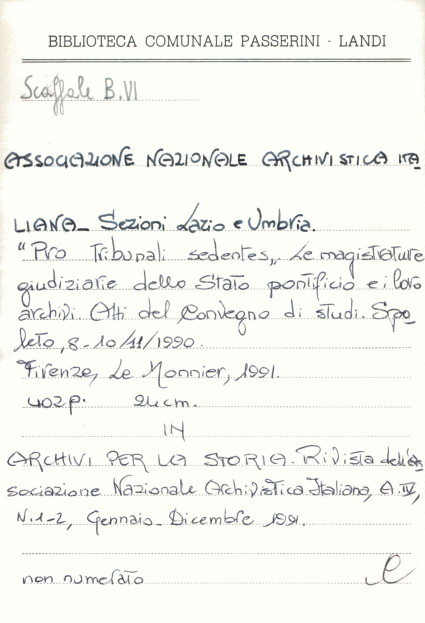 BIBLIOTECA COMUNALE PASSERINI - LANDI
Scaffale B.VI
ASSOCIAZIONE NAZIONALE ARCHIVISTICA ITA
LIANA_ Sezioni Lazio e Umbria.
"Pro Tribunali sedentes„. Le magistrature
giudiziarie dello Stato pontificio e i loro
archivi. Atti del Convegno di studi. Spo
leto, 8-10/11/1990.
Firenze, Le Monnier, 1991.
402p. 24cm.
IN
ARCHIVI PER LA STORIA. Rivista dell'As
sociazione Nazionale Archivistica Italiana, A.IV,
N.1-2, Gennaio-Dicembre 1991.
non numerato